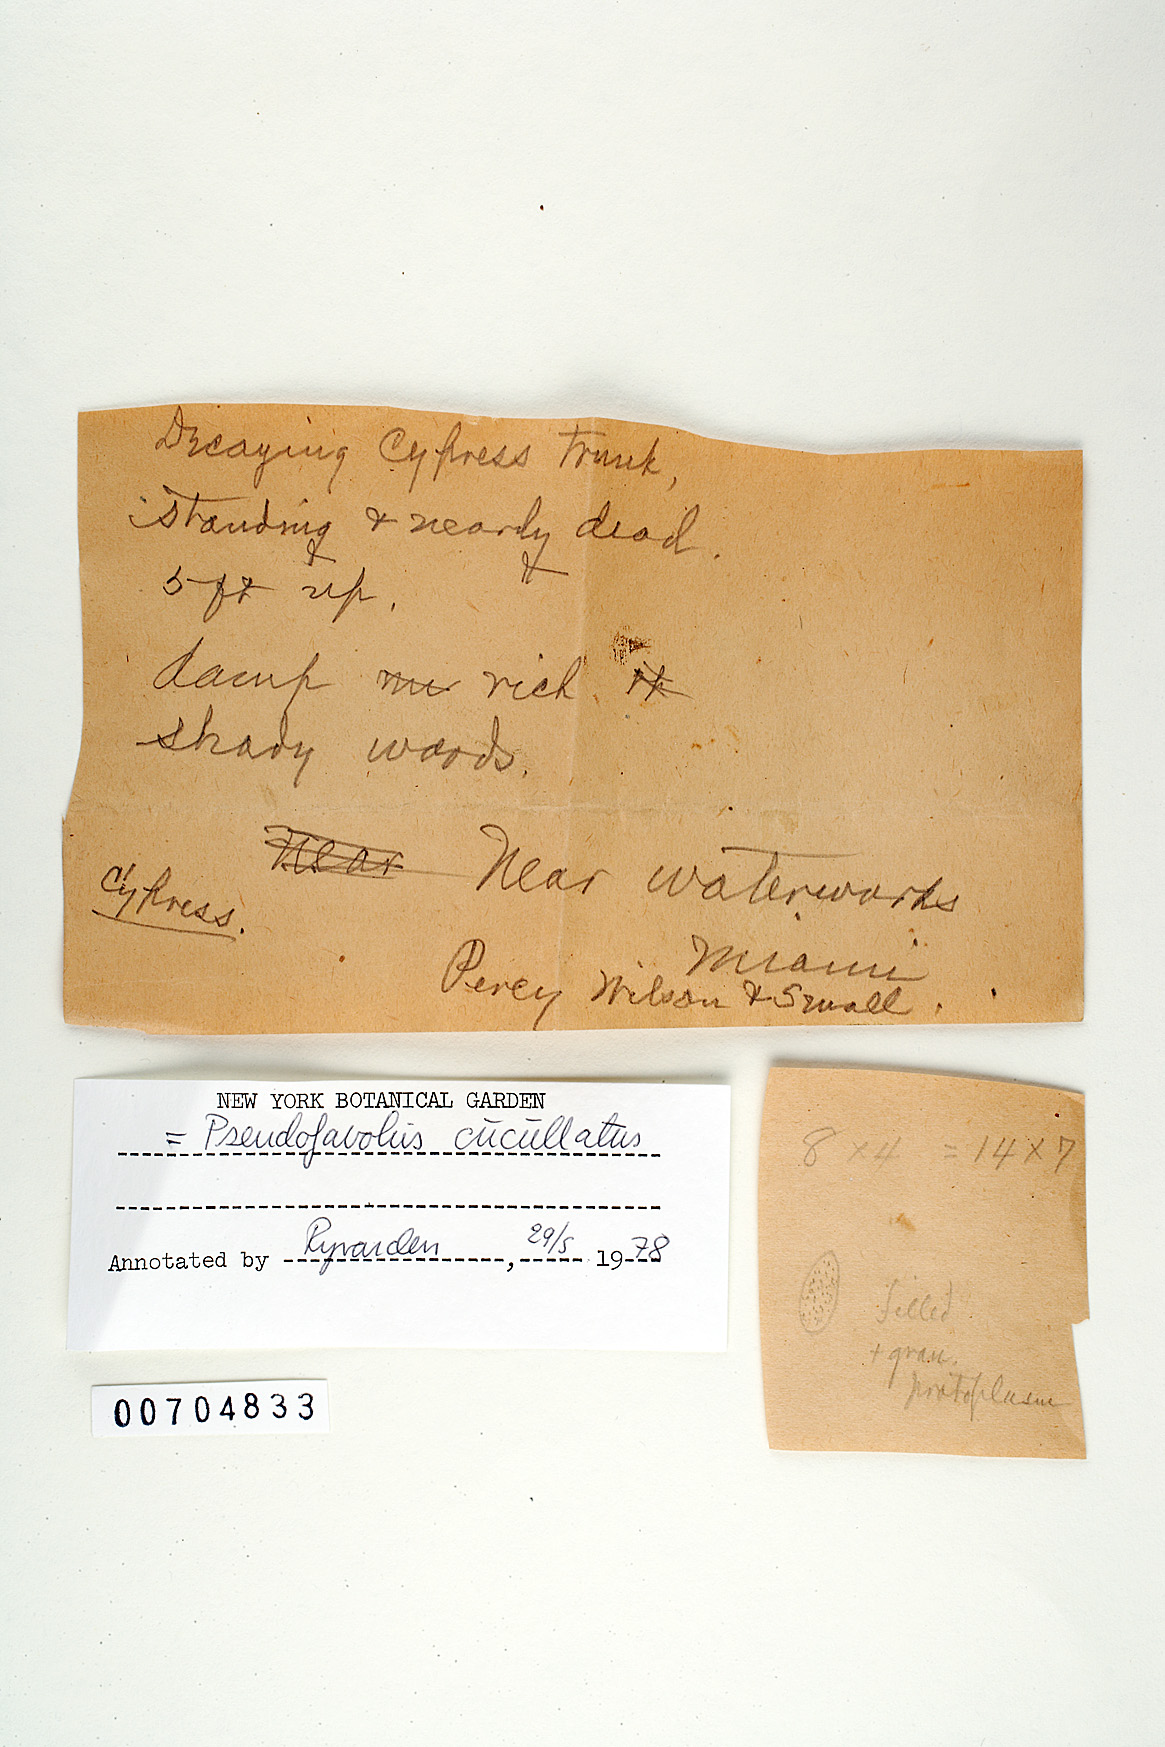 Decaying Cypress trunk,
standing & nearly dead.
5 ft up.
damp rich
shady woods.
Near Near waterworks
Cypress.
Miami
Percy Wilson & Small.
NEW YORK BOTANICAL GARDEN
= Pseudofavolus cucullatus
Annotated by Ryvarden, 29/5 1978
00704833
8 × 4 = 14 × 7
filled
+ gran.
protoplasm